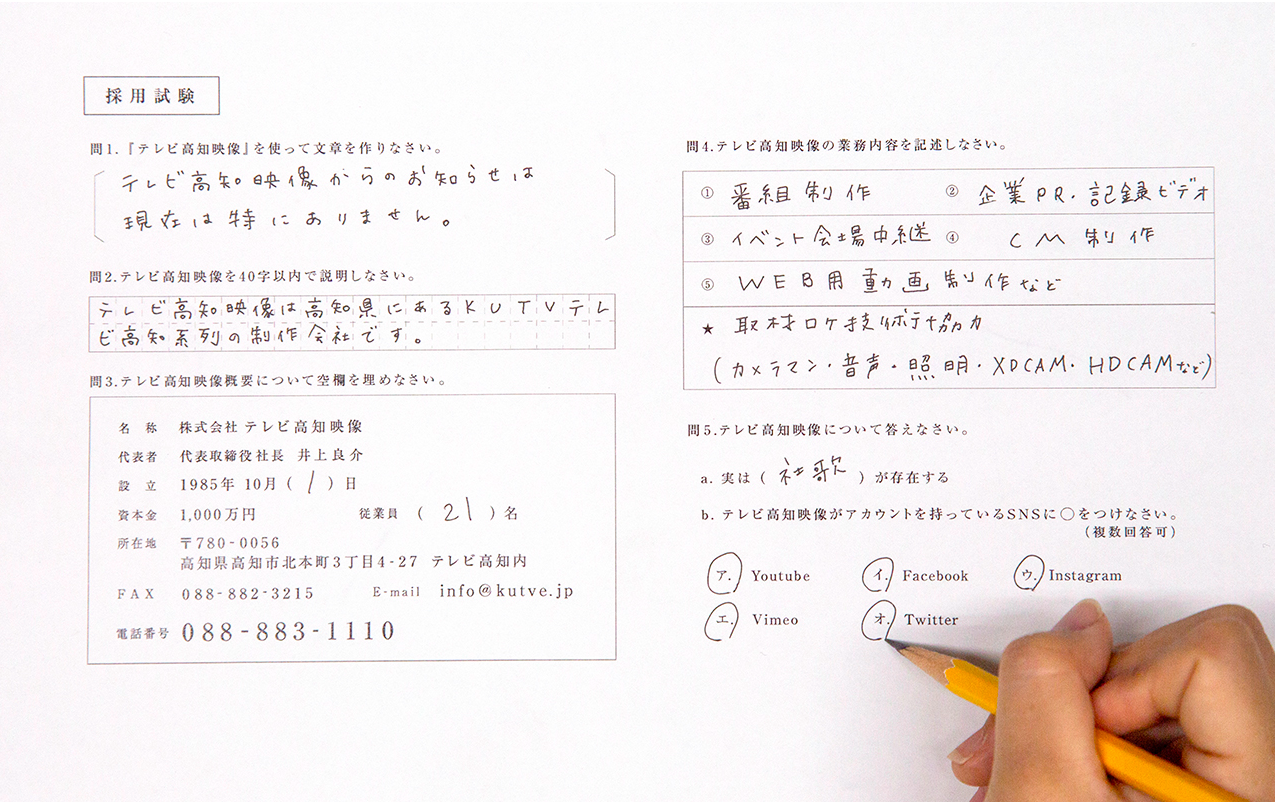 採用試験
問1.『テレビ高知映像』を使って文章を作りなさい。
テレビ高知映像からのお知らせは
現在は特にありません。
問2.テレビ高知映像を40字以内で説明しなさい。
テレビ高知映像は高知県にあるKUTVテレ
ビ高知系列の制作会社です。
問3.テレビ高知映像概要について空欄を埋めなさい。
名 称 株式会社 テレビ高知映像
代表者 代表取締役社長 井上良介
設 立 1985年 10月 ( 1 ) 日
資本金 1,000万円 従業員 ( 21 ) 名
所在地 〒780-0056
高知県高知市北本町3丁目4-27 テレビ高知内
FAX 088-882-3215 E-mail info@kutve.jp
電話番号 088-883-1110
問4.テレビ高知映像の業務内容を記述しなさい。
① 番組制作 ② 企業PR・記録ビデオ
③ イベント会場中継 ④ CM制作
⑤ WEB用動画制作など
★ 取材ロケ技術協力
(カメラマン・音声・照明・XDCAM・HDCAMなど)
問5.テレビ高知映像について答えなさい。
a. 実は ( 社歌 ) が存在する
b. テレビ高知映像がアカウントを持っているSNSに○をつけなさい。
(複数回答可)
ア. Youtube イ. Facebook ウ. Instagram
エ. Vimeo オ. Twitter